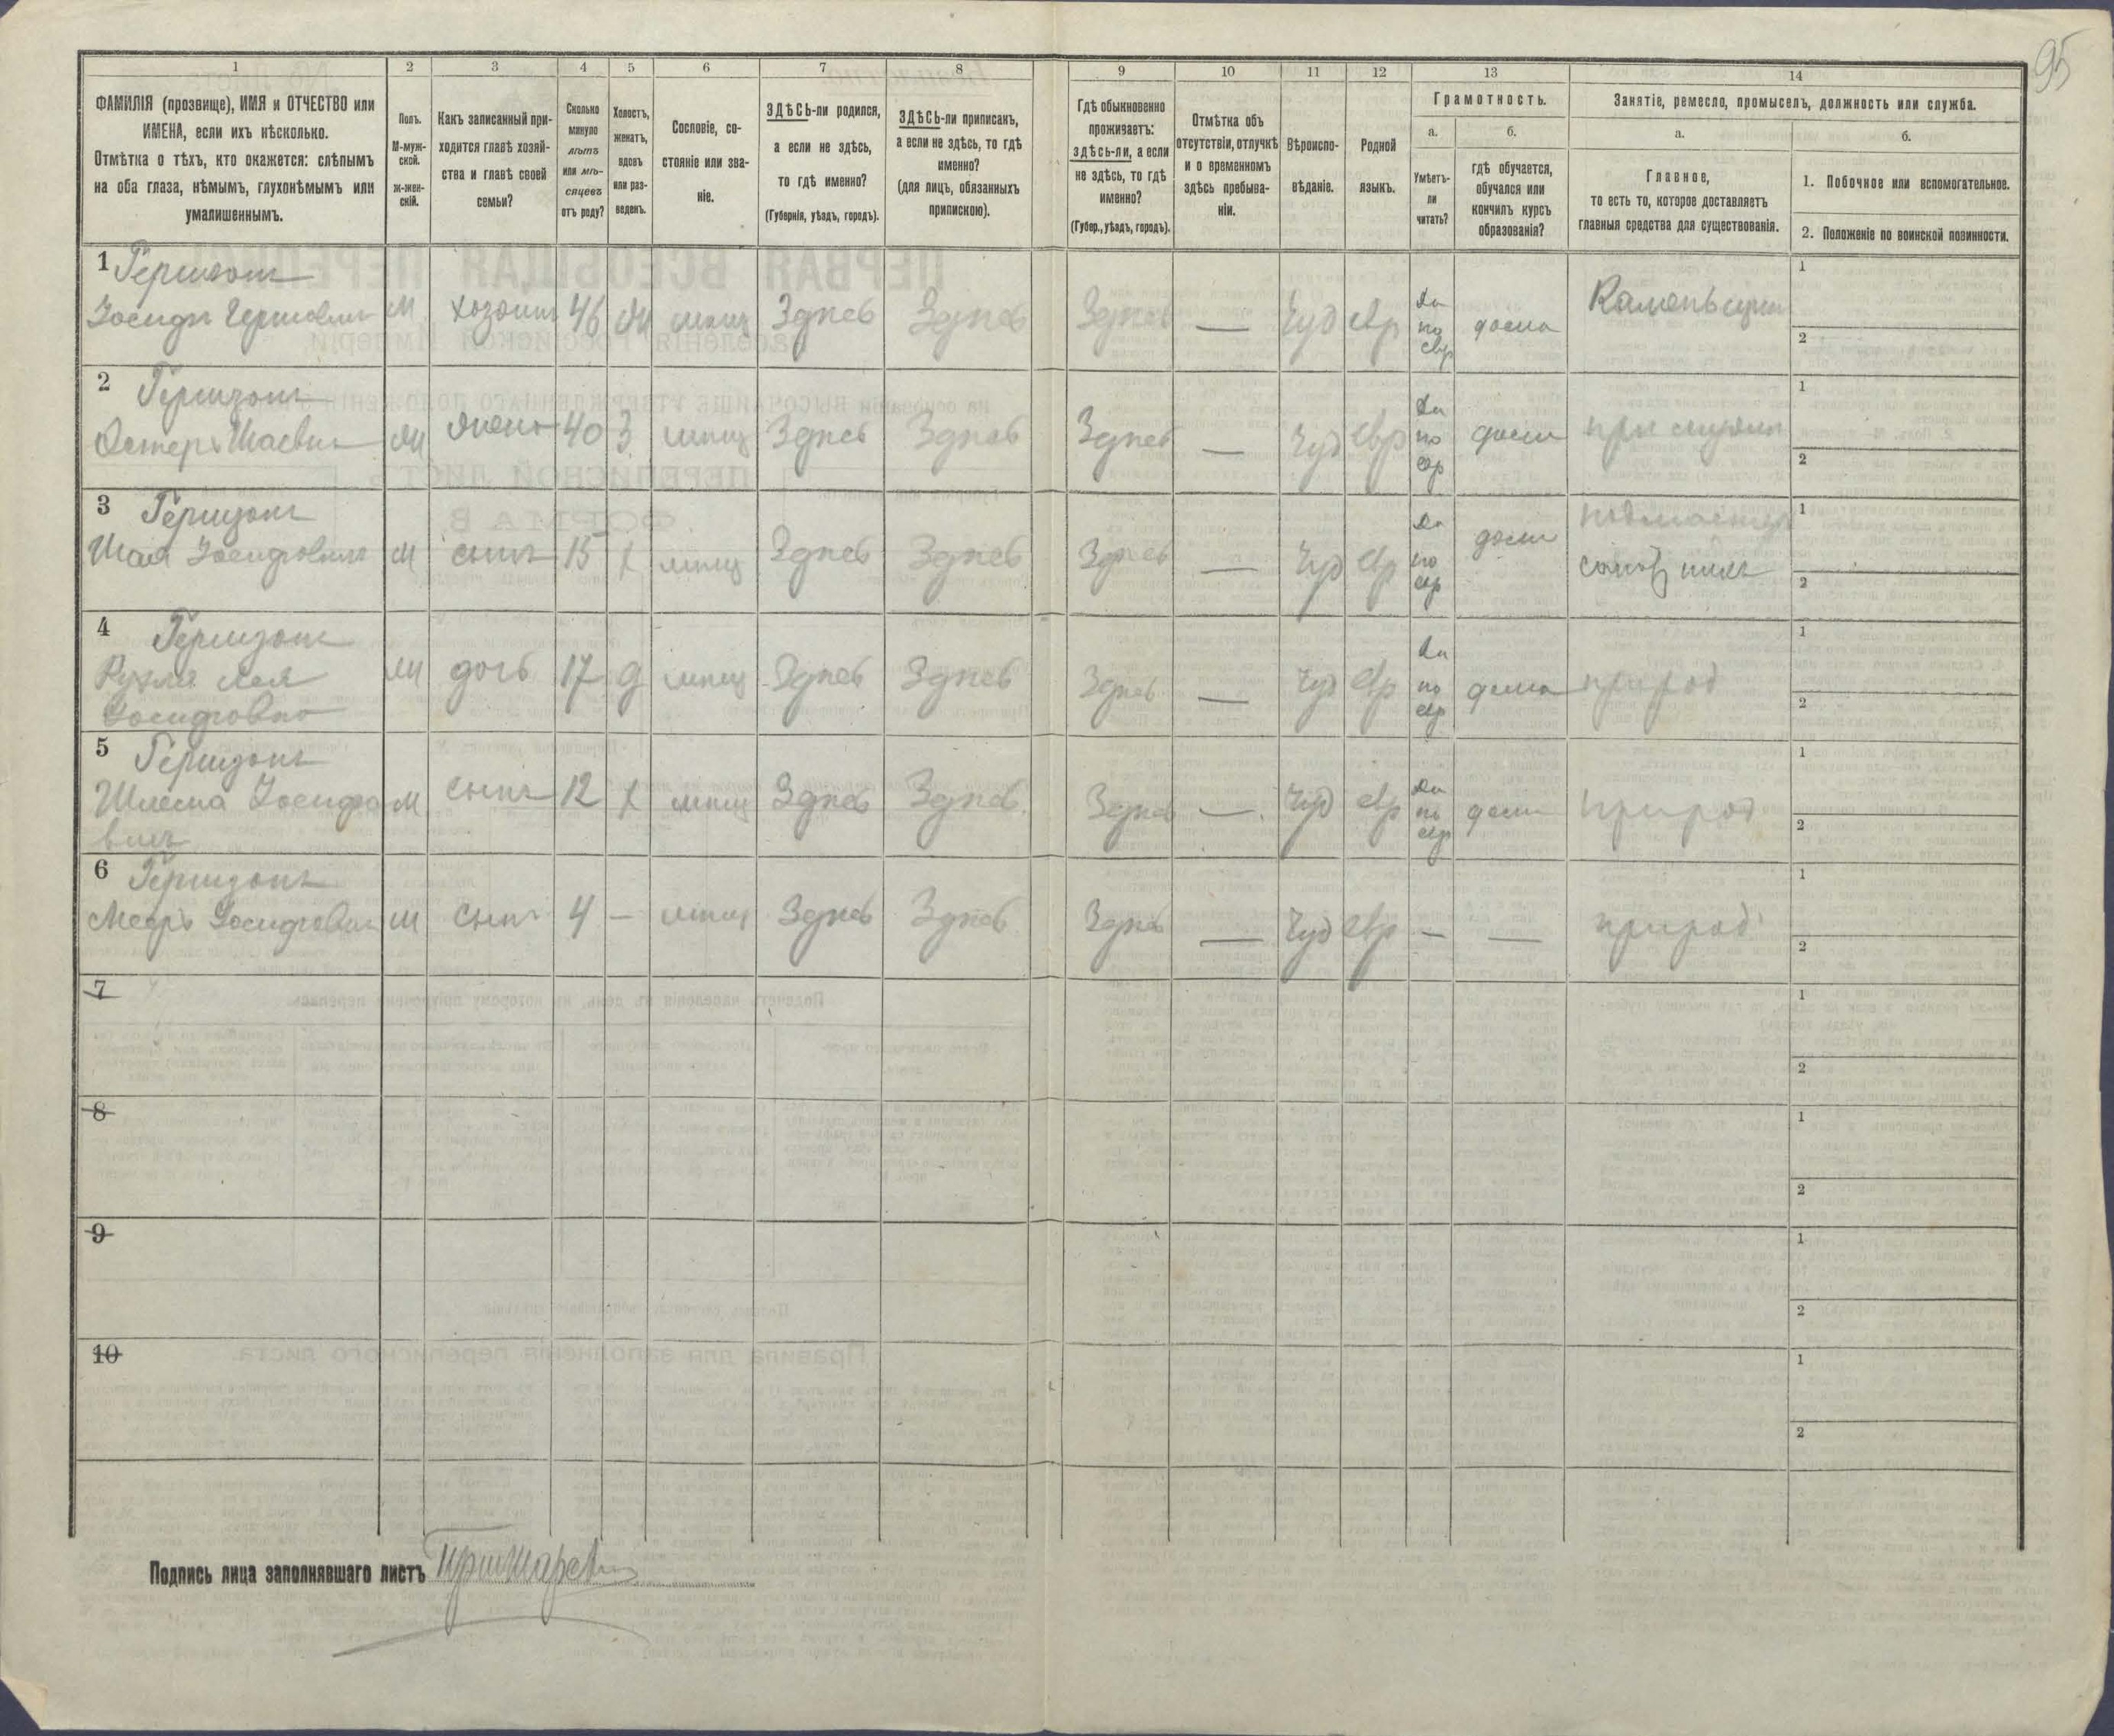 95
1 2 3 4 5 6 7 8 9 10 11 12 13 14
ФАМИЛІЯ (прозвище), ИМЯ и ОТЧЕСТВО или
ИМЕНА, если ихъ нѣсколько.
Отмѣтка о тѣхъ, кто окажется: слѣпымъ
на оба глаза, нѣмымъ, глухонѣмымъ или
умалишеннымъ.
Полъ.
М-муж-
ской.
Ж-жен-
скій.
Какъ записанный при-
ходится главѣ хозяй-
ства и главѣ своей
семьи?
Сколько
минуло
лѣтъ
или мѣ-
сяцевъ
отъ роду?
Холостъ,
женатъ,
вдовъ
или раз-
веденъ.
Сословіе, со-
стояніе или зва-
ніе.
ЗДѢСЬ-ли родился,
а если не здѣсь,
то гдѣ именно?
(Губернія, уѣздъ, городъ).
ЗДѢСЬ-ли приписанъ,
а если не здѣсь, то гдѣ
именно?
(для лицъ, обязанныхъ
припискою).
Гдѣ обыкновенно
проживаетъ:
здѣсь-ли, а если
не здѣсь, то гдѣ
именно?
(Губер., уѣздъ, городъ).
Отмѣтка объ
отсутствіи, отлучкѣ
и о временномъ
здѣсь пребыва-
ніи.
Вѣроиспо-
вѣданіе.
Родной
языкъ.
Грамотность.
а.
Умѣетъ-
ли
читать?
б.
гдѣ обучается,
обучался или
кончилъ курсъ
образованія?
Занятіе, ремесло, промыселъ, должность или служба.
а.
Главное,
то есть то, которое доставляетъ
главныя средства для существованія.
б.
1. Побочное или вспомогательное.
2. Положеніе по воинской повинности.
1 Гершзонъ
Іосифъ Гершовичъ М хозяинъ 46 Ж мѣщ Здѣсь Здѣсь Здѣсь — Іуд Евр Да по евр дома Каменьщикъ 1
2
2 Гершзонъ
Эстеръ Шаевна Ж жена 40 З мѣщ Здѣсь Здѣсь Здѣсь — Іуд Евр Да по евр дома при мужѣ 1
2
3 Гершзонъ
Шая Іосифовичъ М сынъ 15 Х мѣщ Здѣсь Здѣсь Здѣсь — Іуд Евр Да по евр дома подмастер 1
2
4 Гершзонъ
Рухля Лея
Іосифовна Ж дочь 17 Д мѣщ Здѣсь Здѣсь Здѣсь — Іуд Евр Да по евр дома при род 1
2
5 Гершзонъ
Шлема Іосифо
вичъ М сынъ 12 Х мѣщ Здѣсь Здѣсь Здѣсь — Іуд Евр Да по евр дома при род 1
2
6 Гершзонъ
Мееръ Іосифович М сынъ 4 — мѣщ Здѣсь Здѣсь Здѣсь — Іуд Евр — — при род 1
2
7 1
2
8 1
2
9 1
2
10 1
2
Подпись лица заполнявшаго листъ